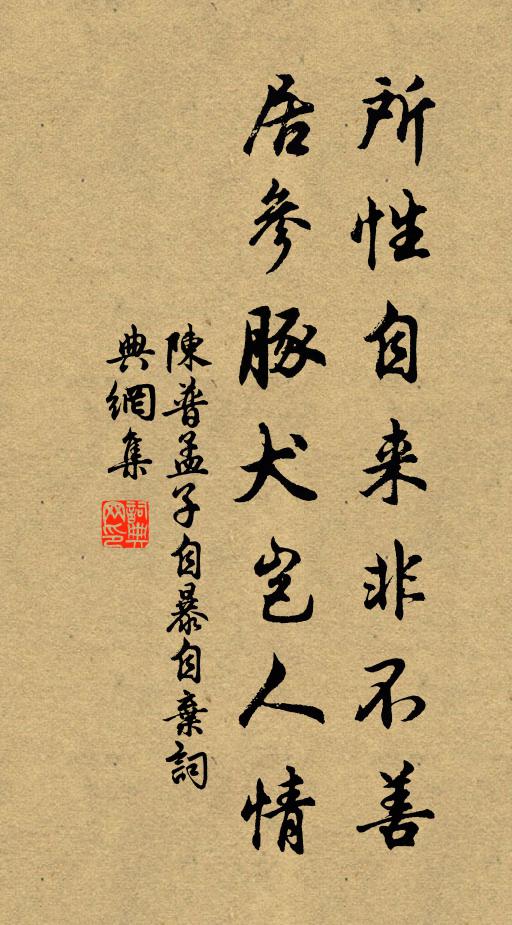 所性自来非不善
居参豚犬岂人情
陳普孟子自暴自棄詞
典網集
詞典
网印